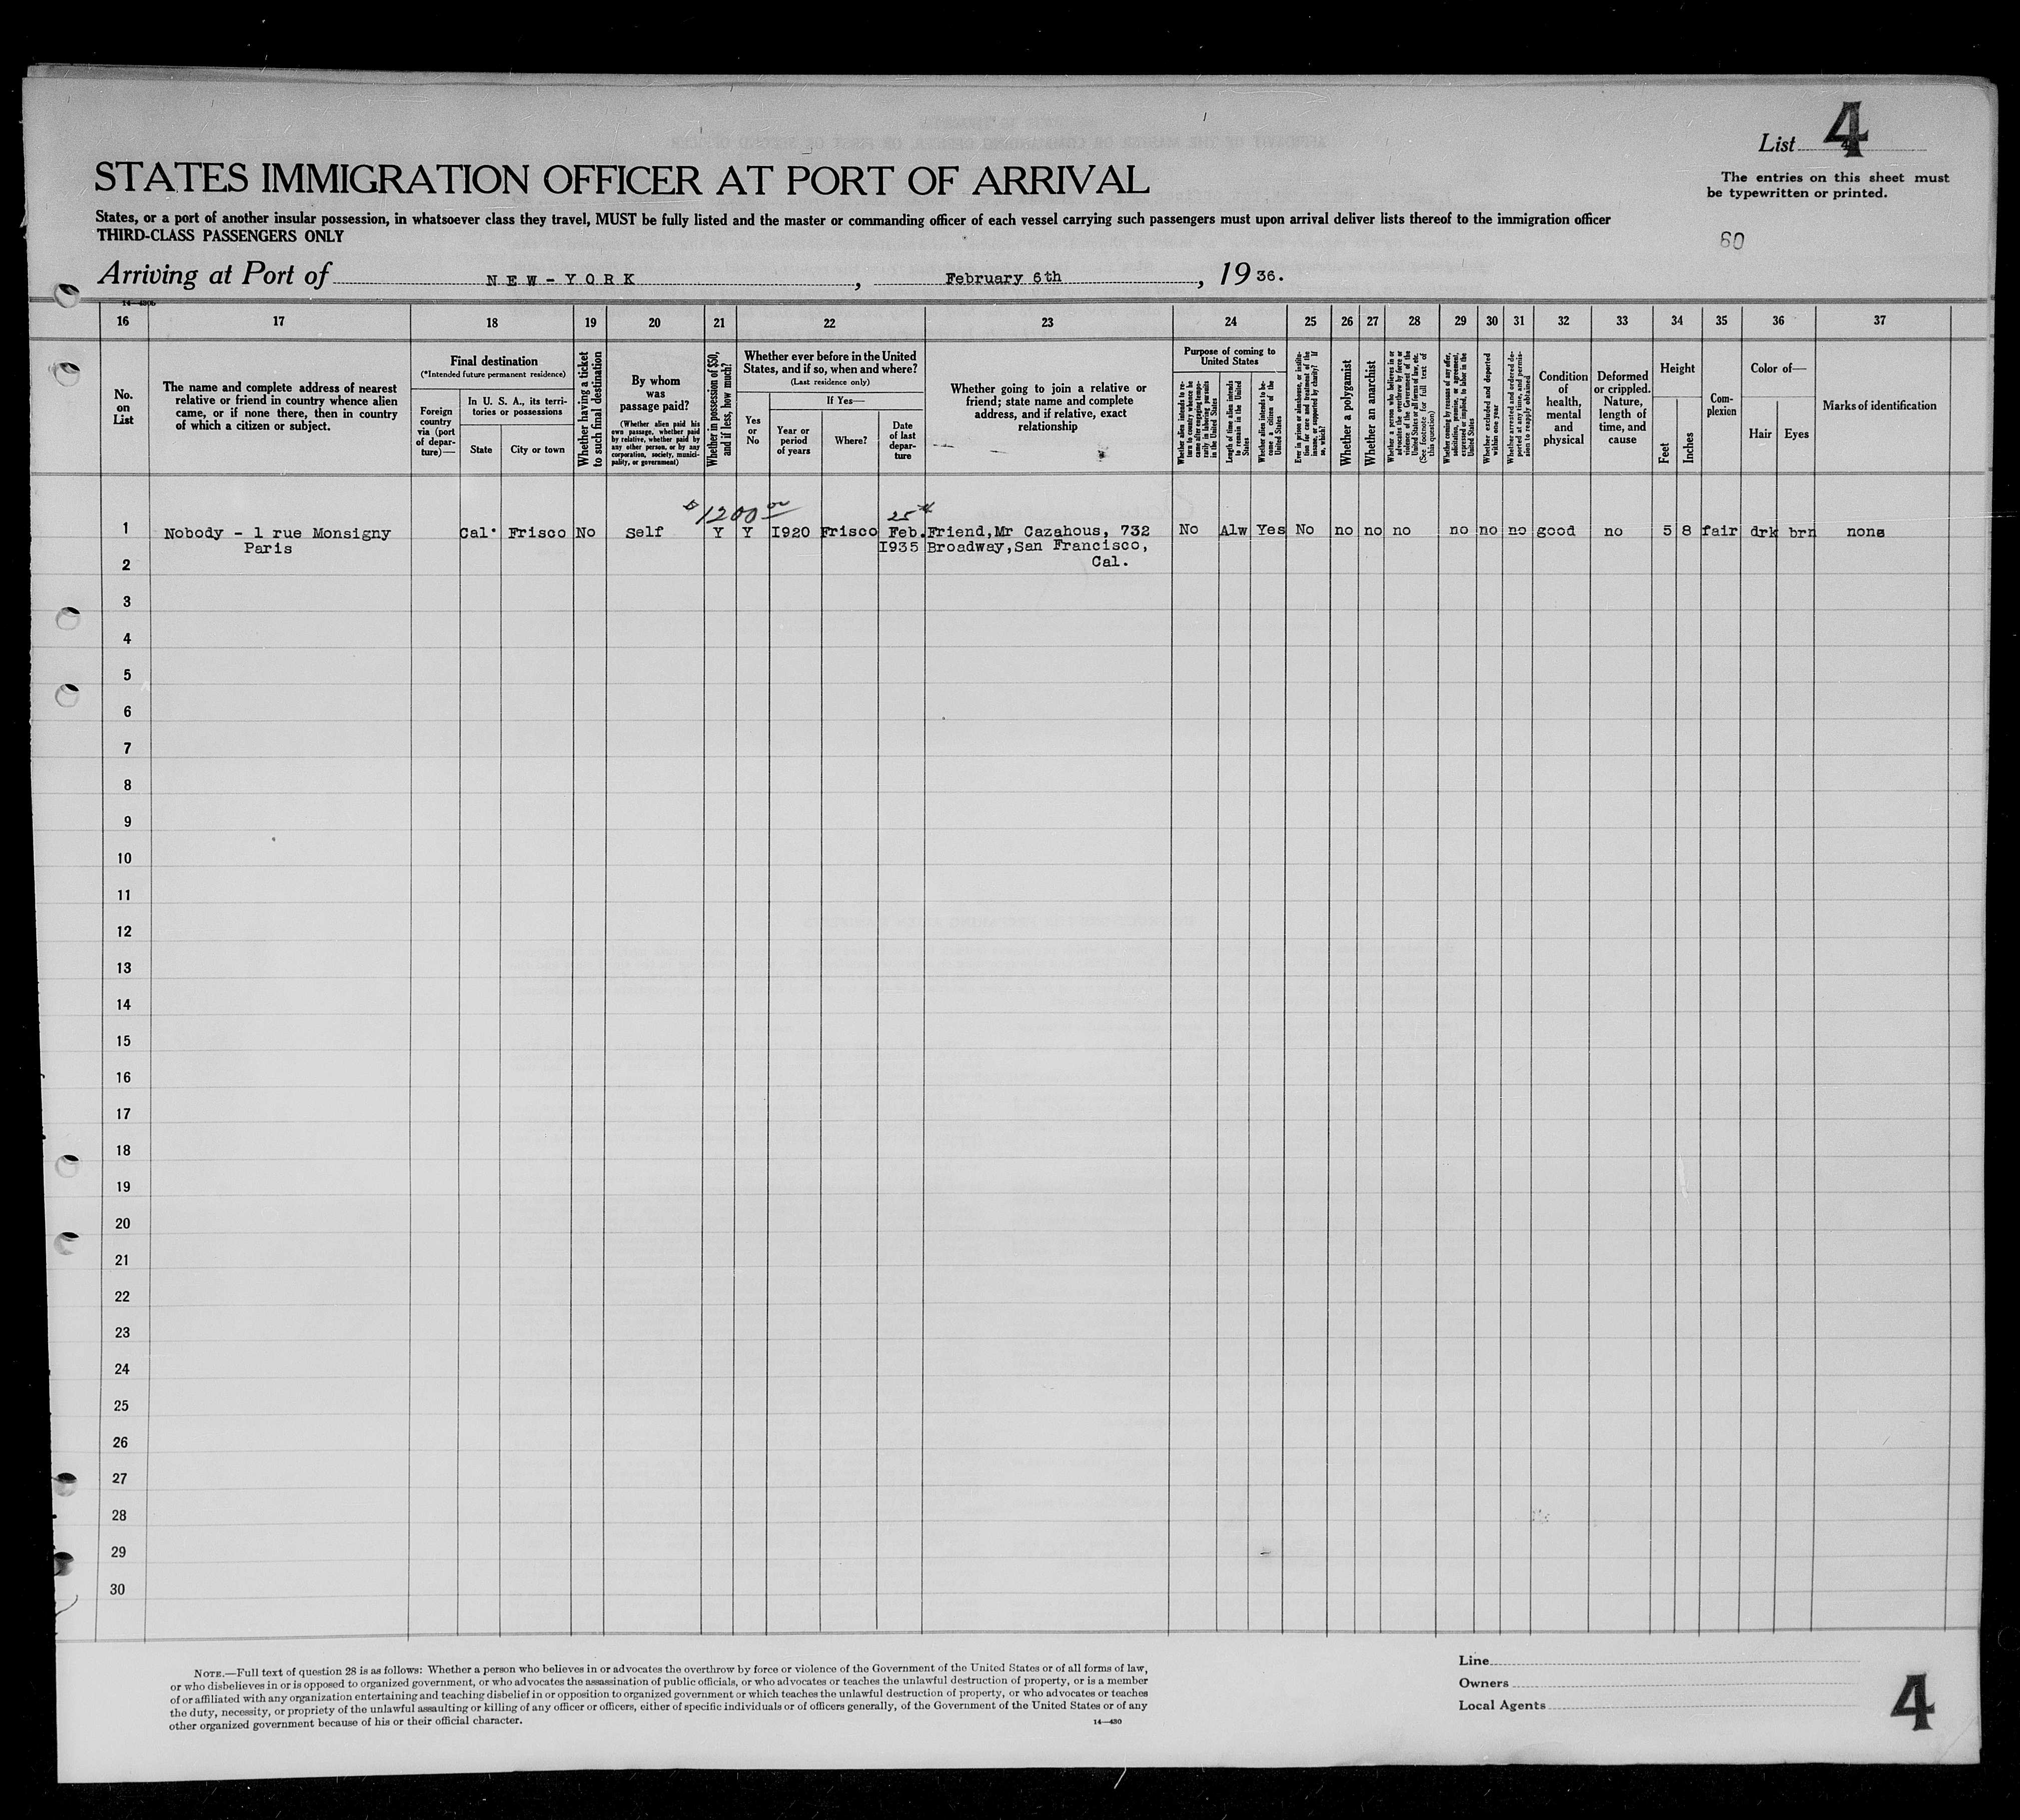 List 4
STATES IMMIGRATION OFFICER AT PORT OF ARRIVAL
The entries on this sheet must
be typewritten or printed.
States, or a port of another insular possession, in whatsoever class they travel, MUST be fully listed and the master or commanding officer of each vessel carrying such passengers must upon arrival deliver lists thereof to the immigration officer
THIRD-CLASS PASSENGERS ONLY
60
Arriving at Port of NEW-YORK, February 6th, 1936.
16 17 18 19 20 21 22 23 24 25 26 27 28 29 30 31 32 33 34 35 36 37
No.
on
List
The name and complete address of nearest
relative or friend in country whence alien
came, or if none there, then in country
of which a citizen or subject.
Final destination
(*Intended future permanent residence)
Foreign
country
via (port
of depar-
ture)—
In U. S. A., its terri-
tories or possessions
State
City or town
Whether having a ticket
to such final destination
By whom
was
passage paid?
(Whether alien paid his
own passage, whether paid
by relative, whether paid by
any other person, or by any
corporation, society, munici-
pality, or government)
Whether in possession of $50,
and if less, how much?
Whether ever before in the United
States, and if so, when and where?
(Last residence only)
Yes
or
No
If Yes—
Year or
period
of years
Where?
Date
of last
depar-
ture
Whether going to join a relative or
friend; state name and complete
address, and if relative, exact
relationship
Purpose of coming to
United States
Whether alien intends to re-
turn to country whence he
came after engaging tempo-
rarily in laboring pursuits
in the United States
Length of time alien intends
to remain in the United
States
Whether alien intends to be-
come a citizen of the
United States
Ever in prison or almshouse, or institu-
tion for care and treatment of the
insane, or supported by charity? If
so, which?
Whether a polygamist
Whether an anarchist
Whether a person who believes in or
advocates the overthrow by force or
violence of the Government of the
United States or all forms of law, etc.
(See footnote for full text of
this question)
Whether coming by reason of any offer,
solicitation, promise, or agreement,
expressed or implied, to labor in the
United States
Whether excluded and deported
within one year
Whether arrested and ordered de-
ported at any time, and permis-
sion to reapply obtained
Condition
of
health,
mental
and
physical
Deformed
or crippled.
Nature,
length of
time, and
cause
Height
Feet
Inches
Com-
plexion
Color of—
Hair
Eyes
Marks of identification
$1200.00 25th
1 Nobody - 1 rue Monsigny Cal. Frisco No Self Y Y I920 Frisco Feb. Friend,Mr Cazahous, 732 No Alw Yes No no no no no no no good no 5 8 fair drk brn none
Paris I935 Broadway,San Francisco,
2 Cal.
3
4
5
6
7
8
9
10
11
12
13
14
15
16
17
18
19
20
21
22
23
24
25
26
27
28
29
30
NOTE.—Full text of question 28 is as follows: Whether a person who believes in or advocates the overthrow by force or violence of the Government of the United States or of all forms of law,
or who disbelieves in or is opposed to organized government, or who advocates the assassination of public officials, or who advocates or teaches the unlawful destruction of property, or is a member
of or affiliated with any organization entertaining and teaching disbelief in or opposition to organized government or which teaches the unlawful destruction of property, or who advocates or teaches
the duty, necessity, or propriety of the unlawful assaulting or killing of any officer or officers, either of specific individuals or of officers generally, of the Government of the United States or of any
other organized government because of his or their official character.
14—430
Line
Owners
Local Agents
4